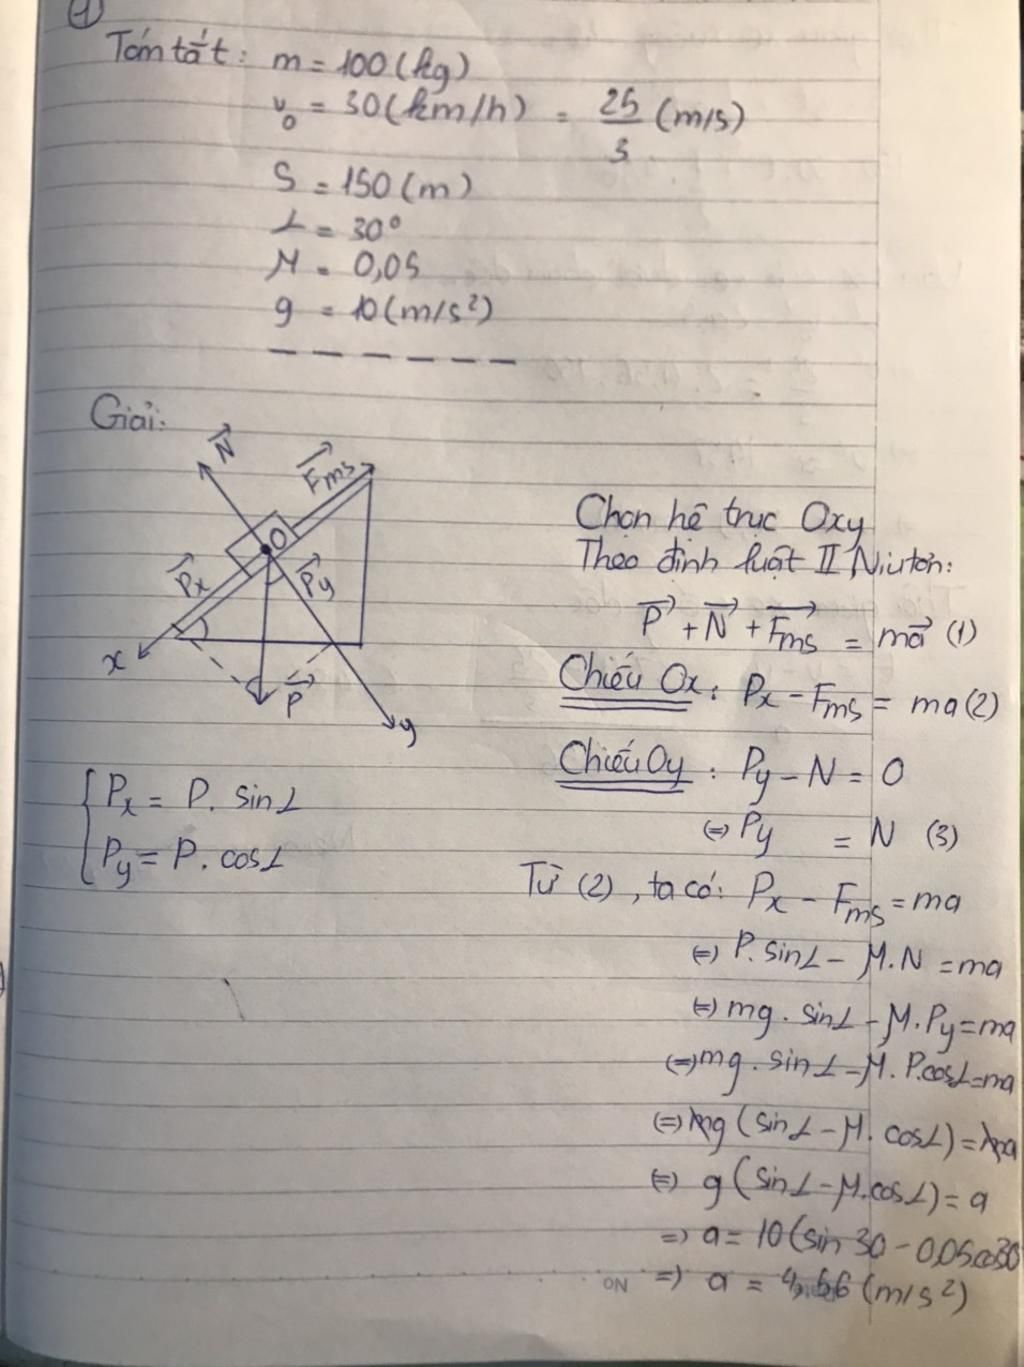 1
Tóm tắt: m = 100 (kg)
v₀ = 30 (km/h) = 25/3 (m/s)
S = 150 (m)
α = 30°
μ = 0,05
g = 10 (m/s²)
Giải:
N
Fms
O
Px
Py
x
P
y
Px = P. sinα
Py = P. cosα
Chọn hệ trục Oxy
Theo định luật II Niutơn:
P + N + Fms = ma (1)
Chiếu Ox: Px - Fms = ma (2)
Chiếu Oy: Py - N = 0
⇔ Py = N (3)
Từ (2), ta có: Px - Fms = ma
⇔ P. sinα - μ.N = ma
⇔ mg. sinα - μ.Py = ma
⇔ mg. sinα - μ. P.cosα = ma
⇔ mg (sinα - μ. cosα) = ma
⇔ g (sinα - μ.cosα) = a
⇒ a = 10 (sin 30 - 0,05cos30
⇒ a = 4,56 (m/s²)